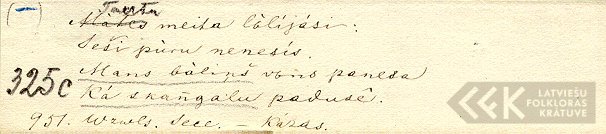 (-) Tautu
Mātes meita lôlījâsi:
Seši pūru nenesīs.
325c Mans bāliņš vōns panesa
Kâ skaņgalu padusê.
951. Wrwls. Secc. – Kāzas.
LATVIEŠU
FOLKLORAS
KRĀTUVE